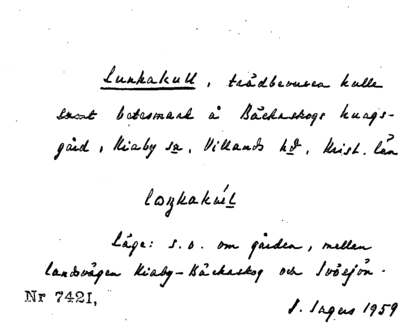 Lunkakull, trädbevuxen kulle
samt betesmark å Bäckaskogs kungs-
gård, Kiaby sn, Villands hd, Krist. län
Läge: s.o. om gården, mellan
landsvägen Kiaby-Bäckaskog och Ivösjön.
Nr 7421,
1959